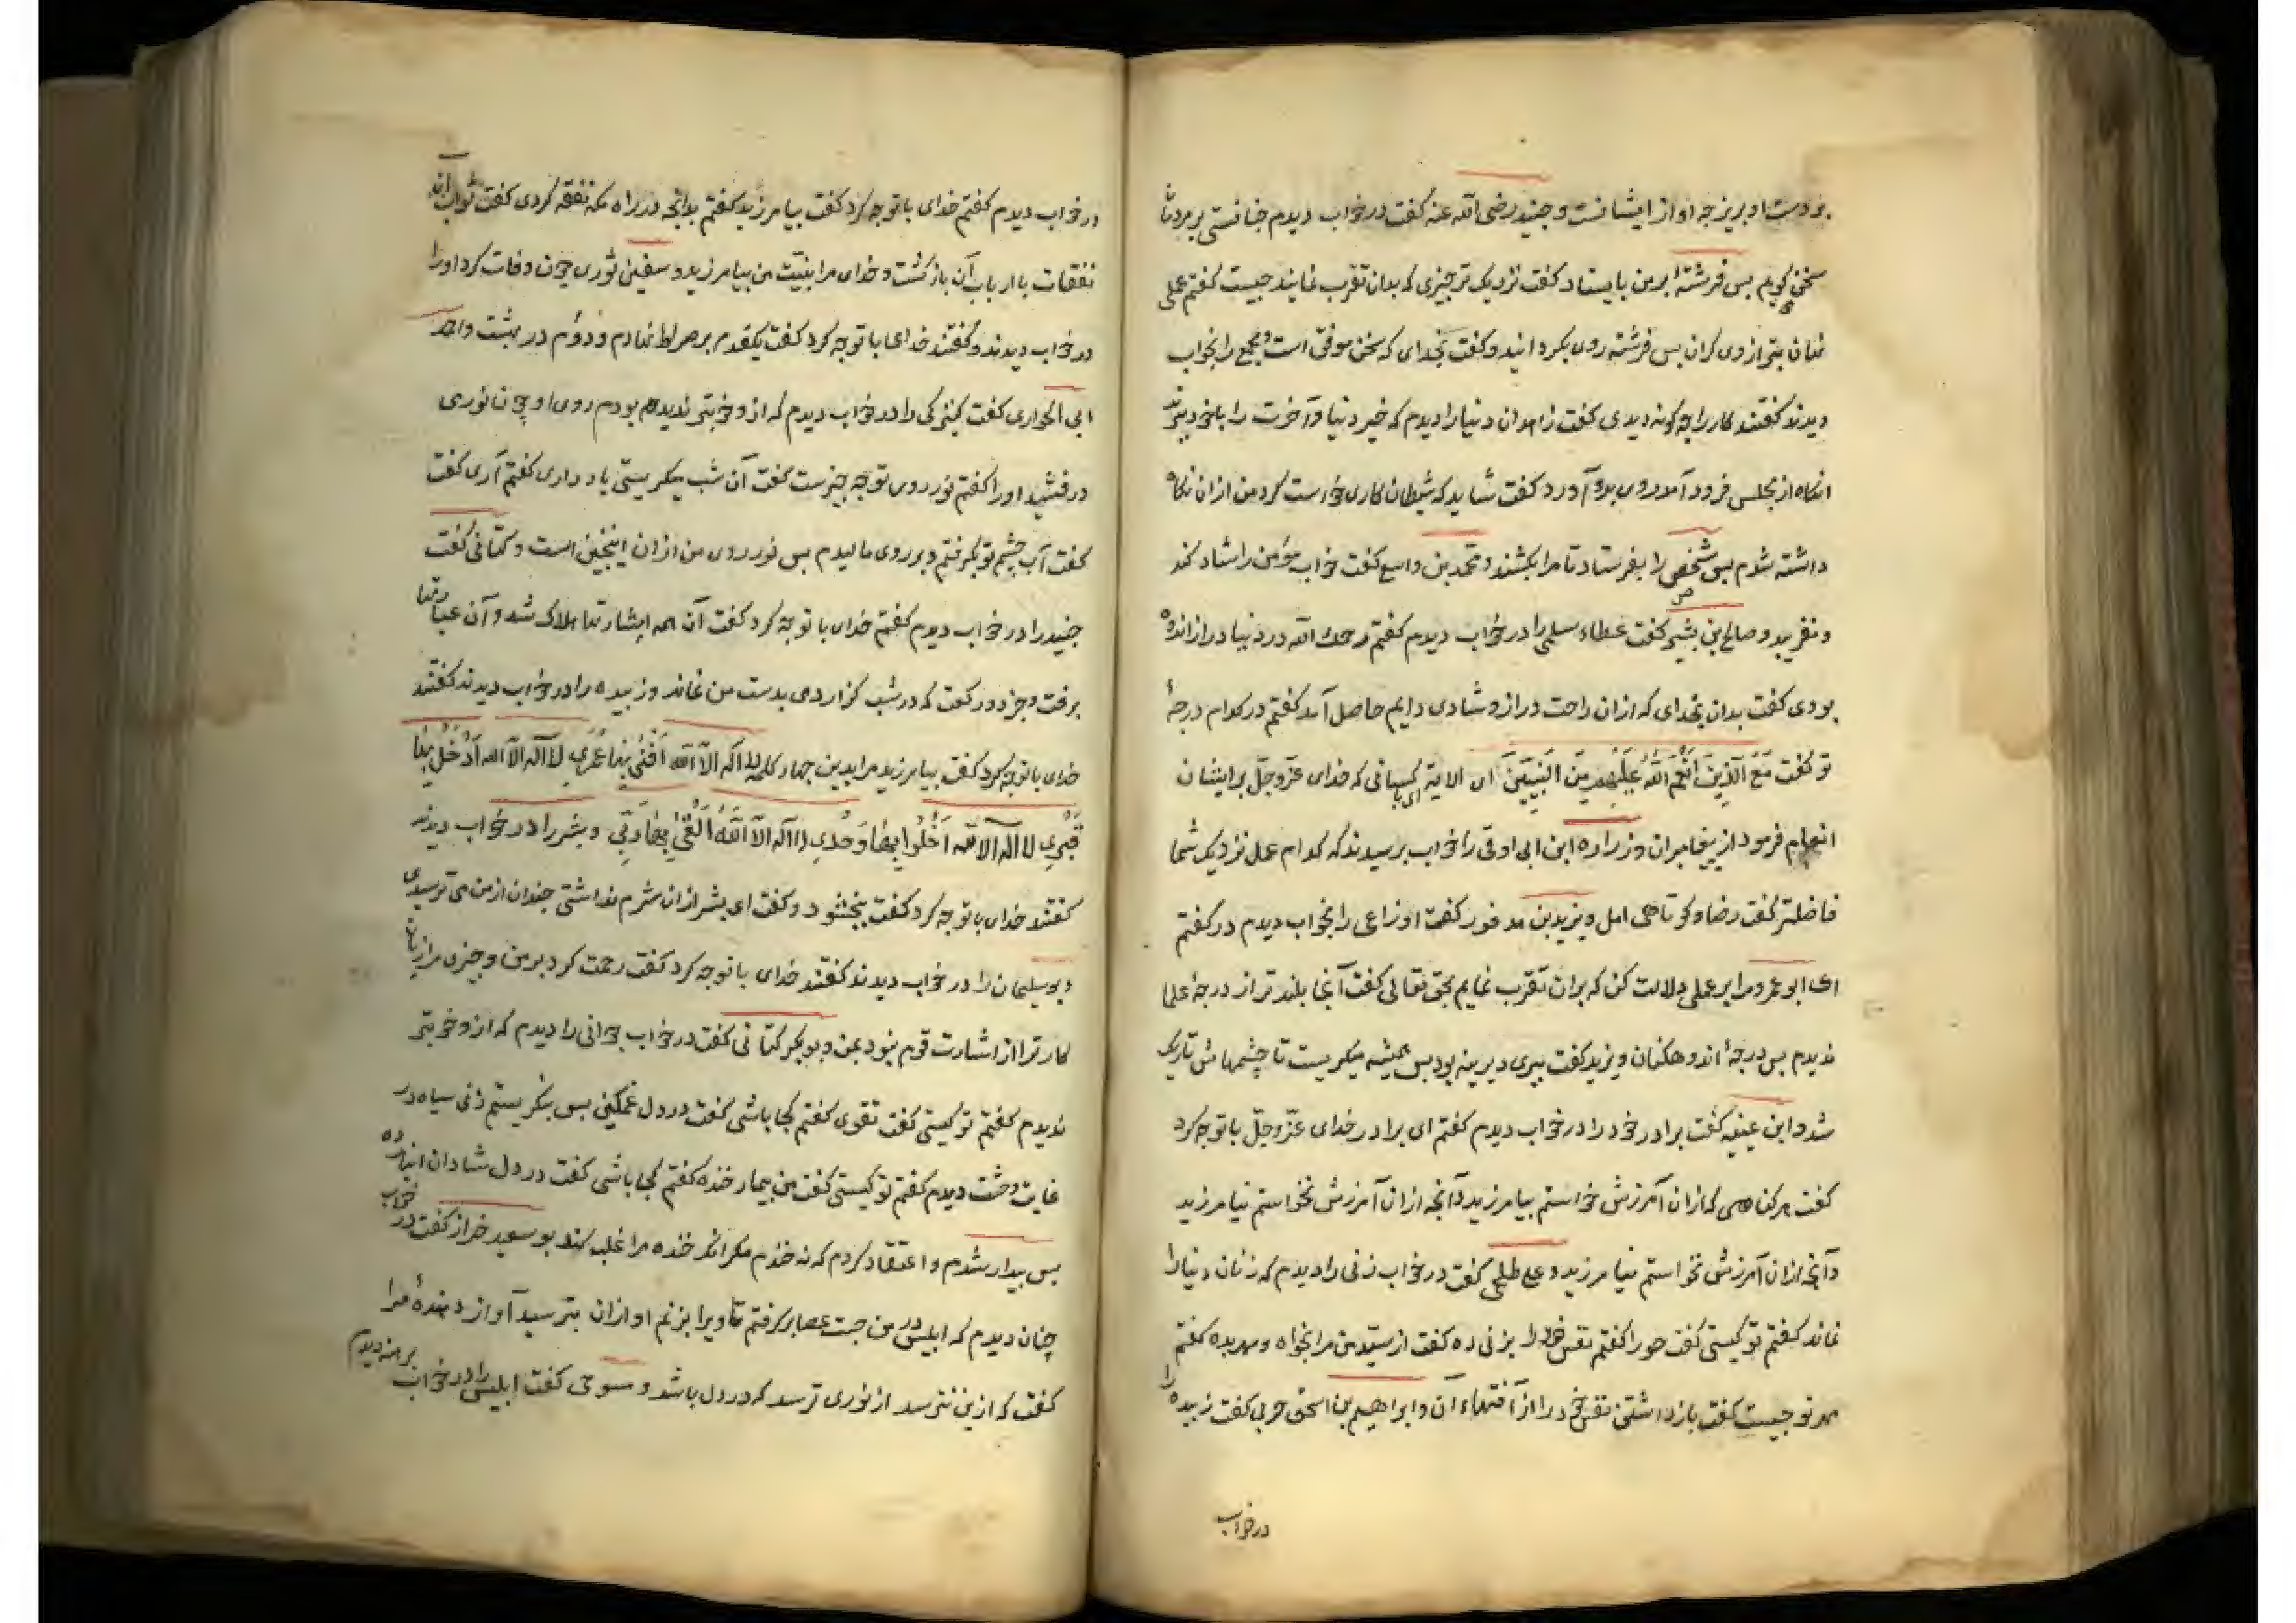 بر دست او بریزچه او از ایشانست و جنید رضی الله عنه گفت در خواب دیدم جنانستی بر مردمان
سخن گویم بس فرشتهٔ بر من بایستاد گفت نزدیک تر جیزی که بدان تقرب نمایند جیست گفتم عملی
نهان بتر ازوی گران بس فرشته روی بگردانید و گفت بخدای که سخن موفق است و مجمع را بخواب
دیدند گفتند کار را چه گونه دیدی گفت زاهدان دنیا را دیدم که خیر دنیا و آخرت را با خود ببرند
انگاه از مجلس فرود آمد روی بدو آورد گفت شاید که شیطان کاری خواست کرد من از ان نگاه
داشته شدم بس شخصی را بفرستاد تا مرا بکشند و محمد بن واسع گفت خواب مؤمن را شاد کند
و نفریبد و صالح بن بشیر گفت عطاء سلمی را در خواب دیدم گفتم رحمک الله در دنیا دراز اندوه
بودی گفت بدان بخدای که ازان راحت دراز و شادی دایم حاصل آمد گفتم در کدام درجهٔ
تو گفت مَعَ الَّذِینَ اَنْعَمَ اللّٰهُ عَلَیْهِمْ مِنَ النَّبِیِّینَ ای الایة ای با کسانی که خدای عزّ و جلّ بر ایشان
انعام فرمود از بیغامبران و زراره ابن ابی اوفی را خواب برسیدند که کدام عمل نزدیک شما
فاضلتر گفت رضا و کوتاهی امل و یزید بن مدعور گفت اوزاعی را بخواب دیدم در گفتم
ای ابو عمرو مرا بر عملی دلالت کن که بران تقرب نمایم بحق تعالی گفت آنجا بلند تر از درجهٔ علما
ندیدم بس درجهٔ اندوهکنان و یزید گفت بیری دیرینه بود بس همیشه میگریست تا چشمهاش تاریک
شد و ابن عیینه گفت برادر خود را در خواب دیدم گفتم ای برادر خدای عزّ و جلّ با تو چه کرد
گفت هر گناهی که ازان آمرزش خواستم بیامرزید و آنجه ازان آمرزش نخواستم نیامرزید
و آنجه ازان آمرزش نخواستم نیامرزید و علی طلحی گفت در خواب زنی را دیدم که زنان دنیا را
نماند گفتم تو کیستی گفت حورا گفتم نفس خود را بزنی ده گفت از سیّد من مرا بخواه و مهر بده گفتم
مهر تو جیست گفت باز داشتن نفس خود را از آفتهاء آن و ابراهیم بن اسحق حربی گفت زبیده را
در خواب
در خواب دیدم گفتم خدای با تو چه کرد گفت بیامرزید گفتم بدانجه در راه مکه نفقه کردی گفت ثواب آن
نفقات با ارباب آن بازگشت و خدای مرا بنیّت من بیامرزید و سفین ثوری چون وفات کرد او را
در خواب دیدند و گفتند خدای با تو چه کرد گفت یکقدم بر صراط نهادم و دوُم در بهشت و احمد
ابی الحواری گفت کنیزکی را در خواب دیدم که از و خوبتر ندیده بودم روی او چون نوری
درفشید او را گفتم نور روی تو جه جیزست گفت آن شب میگریستی یاد داری گفتم آری گفت
گفت آب چشم تو بگرفتم و بر روی مالیدم بس نور روی من از ان اینجنین است و کتانی گفت
جنید را در خواب دیدم گفتم خدای با تو جه کرد گفت آن همه اشارتها هلاک شد و آن عبارتها
برفت و جز دو رکعت که در شب گزاردمی بدست من نماند و زبیده را در خواب دیدند گفتند
خدای با تو چه کرد گفت بیامرزید مرا بدین جهار کلمه لا اله الّا اللّه اَفْنی بِهٰا عُمْری لا اله الّا الله اَدْخُلُ بِهٰا
قَبْرِی لا اله الّا اللّه اَخْلُوا بِهٰا وَحْدِی لا اله الّا اللّهُ اَلْقیٰ بِهٰا رَبّی و بشر را در خواب دیدند
گفتند خدای با تو جه کرد گفت ببخشود و گفت ای بشر از ان شرم نداشتی جندان از من می ترسیدی
و بو سلیمان را در خواب دیدند گفتند خدای با تو جه کرد گفت رحمت کرد بر من و جیزی مرا زیان
کار ترا از اشارت قوم نبود بمن و بو بکر کتانی گفت در خواب جوانی را دیدم که از و خوبتر
ندیدم گفتم تو کیستی گفت تقوی گفتم کجا باشی گفت در دل غمگین بس بنگریستم زنی سیاه در
غایت وحشت دیدم گفتم تو کیستی گفت من بیمار خنده گفتم کجا باشی گفت در دل شادان انبارده
بس بیدار شدم و اعتقاد کردم که نه خندم مگر انکه خنده مرا غلبه کند بو سعید خراز گفت در خواب
چنان دیدم که ابلیس در من جست عصا برگرفتم تا ویرا بزنم او ازان بترسید آواز دهندهٔ مرا
گفت که ازین نترسد از نوری ترسد که در دل باشد و مسوحی گفت ابلیس را در خواب برهنه دیدم